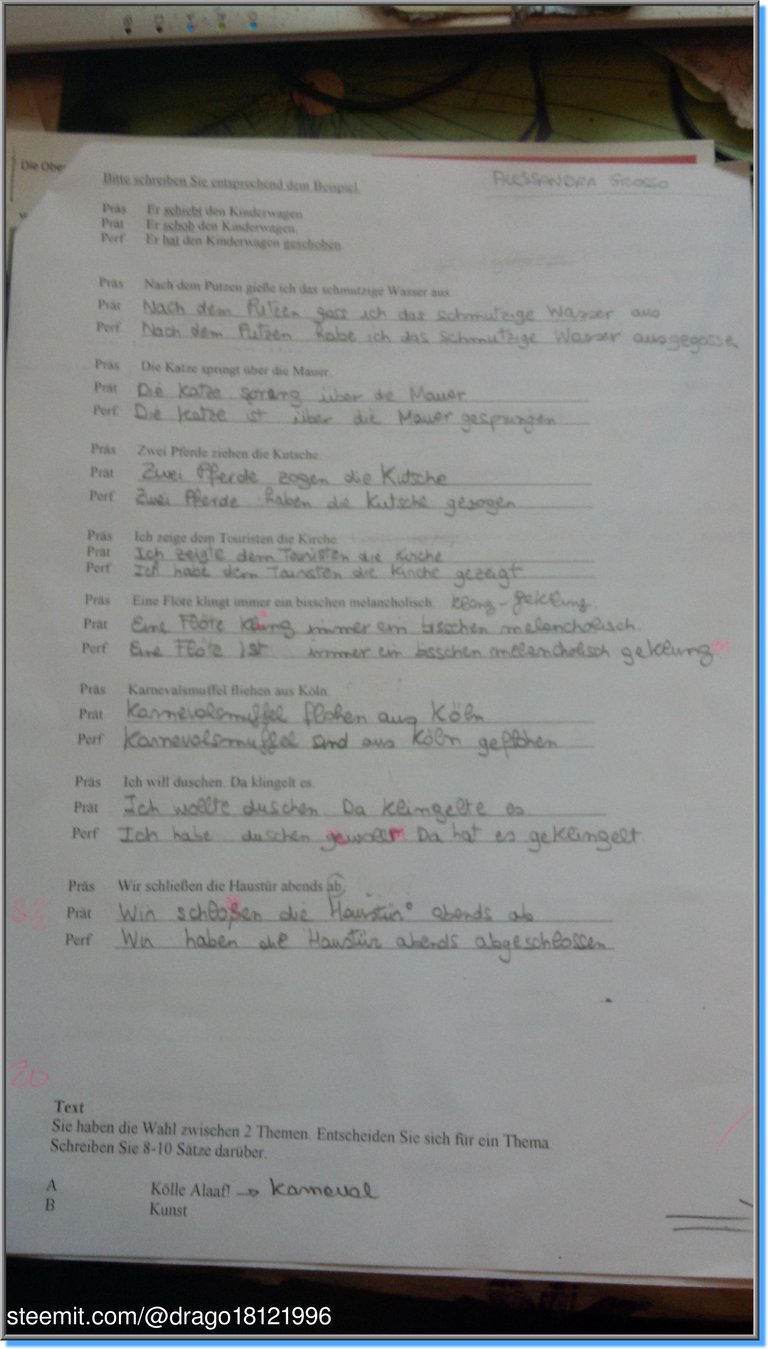 Die Ober
Bitte schreiben Sie entsprechend dem Beispiel.
ALESSANDRA GROSSO
Präs Er schiebt den Kinderwagen
Prät Er schob den Kinderwagen.
Perf Er hat den Kinderwagen geschoben
Präs Nach dem Putzen gieße ich das schmutzige Wasser aus.
Prät Nach dem Putzen goss ich das schmutzige Wasser aus
Perf Nach dem Putzen habe ich das schmutzige Wasser ausgegossen
Präs Die Katze springt über die Mauer.
Prät Die Katze sprang über de Mauer
Perf Die Katze ist über die Mauer gesprungen
Präs Zwei Pferde ziehen die Kutsche.
Prät Zwei Pferde zogen die Kutsche
Perf Zwei Pferde haben die Kutsche gezogen
Präs Ich zeige dem Touristen die Kirche
Prät Ich zeigte dem Touristen die Kirche
Perf Ich habe dem Touristen die Kirche gezeigt
Präs Eine Flöte klingt immer ein bisschen melancholisch. klang - geklung.
Prät Eine Flöte klang immer ein bisschen melancholisch.
Perf Eine Flöte ist immer ein bisschen melancholisch geklungen
Präs Karnevalsmuffel fliehen aus Köln
Prät Karnevalsmuffel flohen aus Köln
Perf Karnevalsmuffel sind aus Köln geflohen
Präs Ich will duschen. Da klingelt es.
Prät Ich wollte duschen. Da klingelte es
Perf Ich habe duschen gewollt Da hat es geklingelt
Präs Wir schließen die Haustür abends ab.
Prät Wir schloßen die Haustür abends ab
Perf Wir haben die Haustür abends abgeschlossen
20
Text
Sie haben die Wahl zwischen 2 Themen. Entscheiden Sie sich für ein Thema.
Schreiben Sie 8-10 Sätze darüber.
A Kölle Alaaf! → Karneval
B Kunst
steemit.com/@drago18121996